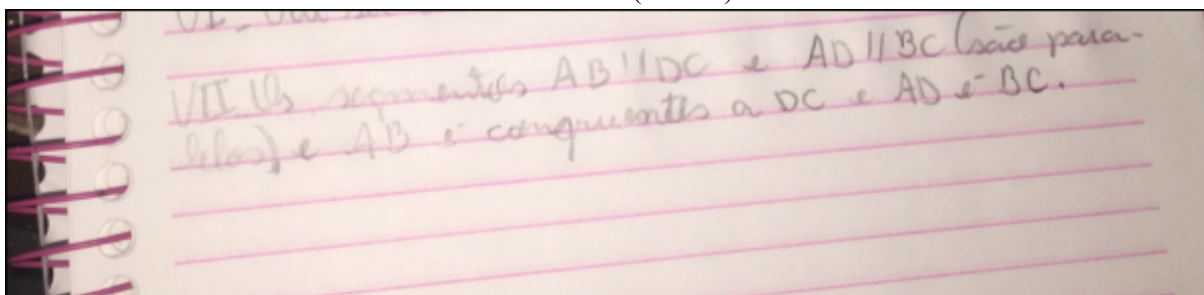 VII Os segmentos AB//DC e AD//BC (são para-
lelas) e AB é congruentes a DC e AD é BC.